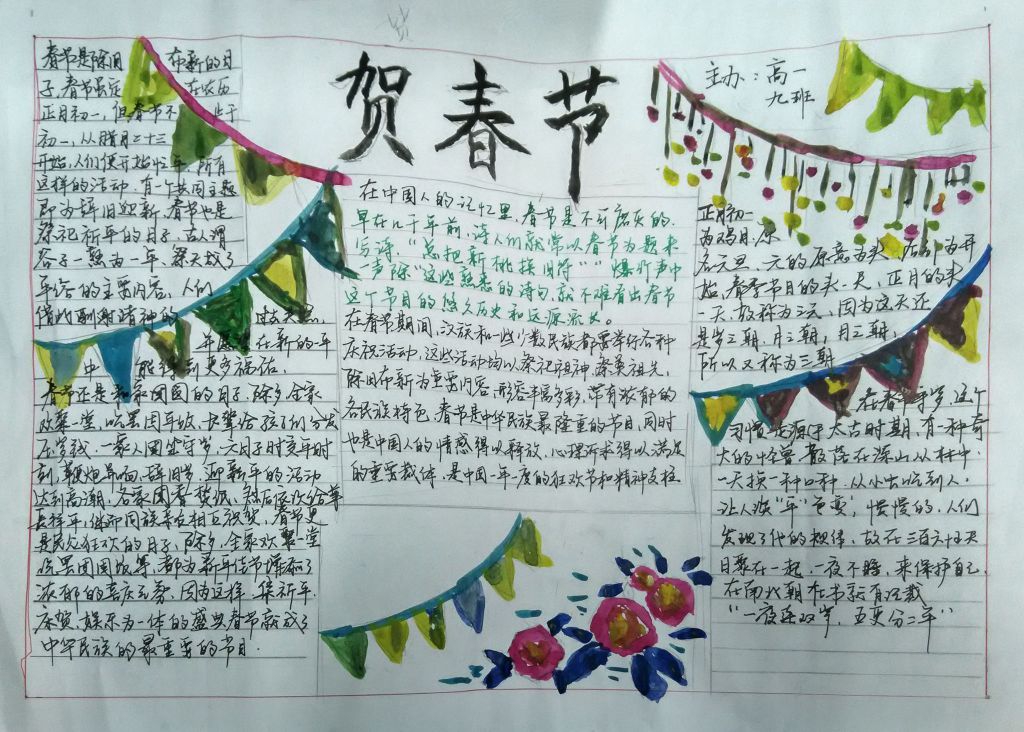 贺春节
主办：高一
九班
春节是除旧 布新的日
子,春节虽定 在农历
正月初一,但春节不 止于
初一,从腊月二十三
开始,人们便开始忙年,所有
这样的活动,有一个共同主题
即为辞旧迎新,春节也是
祭祀祈年的日子,古人谓
谷子一熟为一年,
年谷的主要内容,人们
借此酬谢诸神的 过去关照,
在新的一年
中 能 到更多福佑,
春节还是 家团圆的日子,除夕,全家
欢聚一堂,吃罢团年饭,长辈给孩子们分发
压岁钱,一家人团坐守岁,六日子时交年时
刻,鞭炮异响,辞旧岁,迎新年的活动
达到高潮,各家
去拜年,继而同族亲友相互祝贺,春节更
是民众狂欢的日子,除夕,全家欢聚一堂
吃罢团圆饭等,都为新年佳节增添了
浓郁的喜庆气氛,因为这样,集祈年,
庆贺,娱乐为一体的盛典春节就成了
中华民族的最重要的节日.
在中国人的记忆里,春节是不可磨灭的,
早在几千年前,诗人们就常以春节为题来
写诗,“总把新桃换旧符”“爆竹声中
一声除”这些熟悉的诗句,就不难看出春节
这个节目的悠久历史和 源 长。
在春节期间,汉族和一些少数民族都要举行各种
庆祝活动,这些活动均以祭祀祖神,祭奠祖先,
除旧布新为重要内容,形容丰富多彩,带有浓郁的
各民族特色,春节是中华民族最隆重的节日,同时
也是中国人的情感得以释放,心理诉求得以满足
的重要载体,是中国一年度的狂欢节和精神支柱
正月初一
为鸡日,原
名元旦,元的原意为头,后 为开
始,春季节目的头一天,正月的头
一天,故称为三元,因为这天还
是岁之朝,月之朝,月之朝,
所以又称为三朝
在春节守岁这个
习惯是源于太古时期,有一种奇
大的怪兽,散落在深山丛林中,
一天换一种口种,从小虫吃到人,
让人谈“年”色变,慢慢的,人们
发现了他的规律,故在三百六十五天
日聚在一起,一夜不睡,来保护自己
在南北朝在书就有记载
“一夜连双岁,五更分二年”